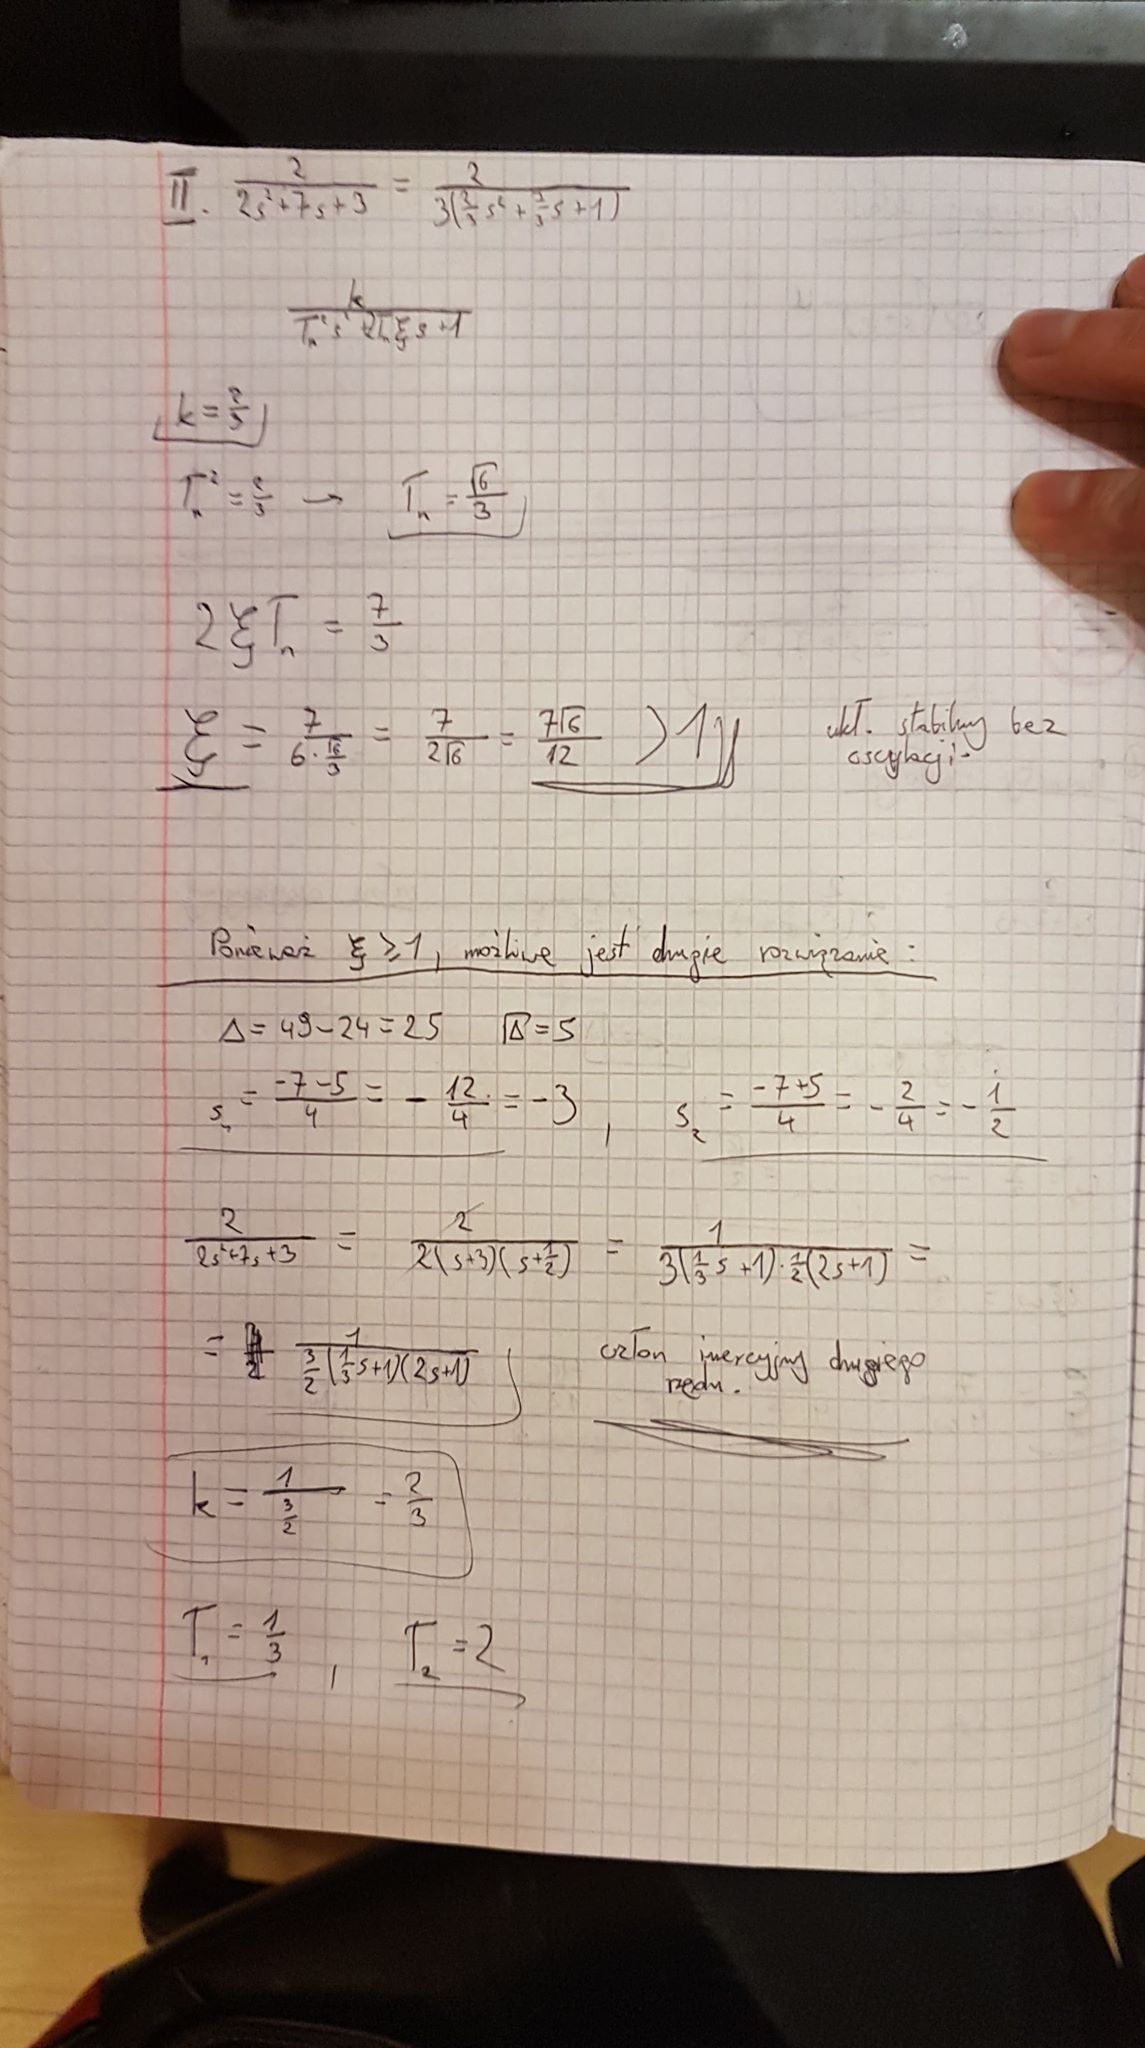 II. 2/(2s²+7s+3) = 2/(3(2/3 s² + 7/3 s + 1))
k/(Tₙ²s² + 2Tₙξs + 1)
k = 2/3
Tₙ² = 2/3 → Tₙ = √6/3
2ξTₙ = 7/3
ξ = 7/(6·√6/3) = 7/(2√6) = 7√6/12 > 1 ukł. stabilny bez
oscylacji.
Ponieważ ξ ≥ 1, możliwe jest drugie rozwiązanie:
Δ = 49 – 24 = 25 √Δ = 5
s₁ = (-7-5)/4 = -12/4 = -3, s₂ = (-7+5)/4 = -2/4 = -1/2
2/(2s²+7s+3) = 2/(2(s+3)(s+1/2)) = 1/(3(1/3 s+1)·1/2(2s+1)) =
= 1/(3/2(1/3 s+1)(2s+1)) człon inercyjny drugiego
rzędu.
k = 1/(3/2) = 2/3
T₁ = 1/3, T₂ = 2